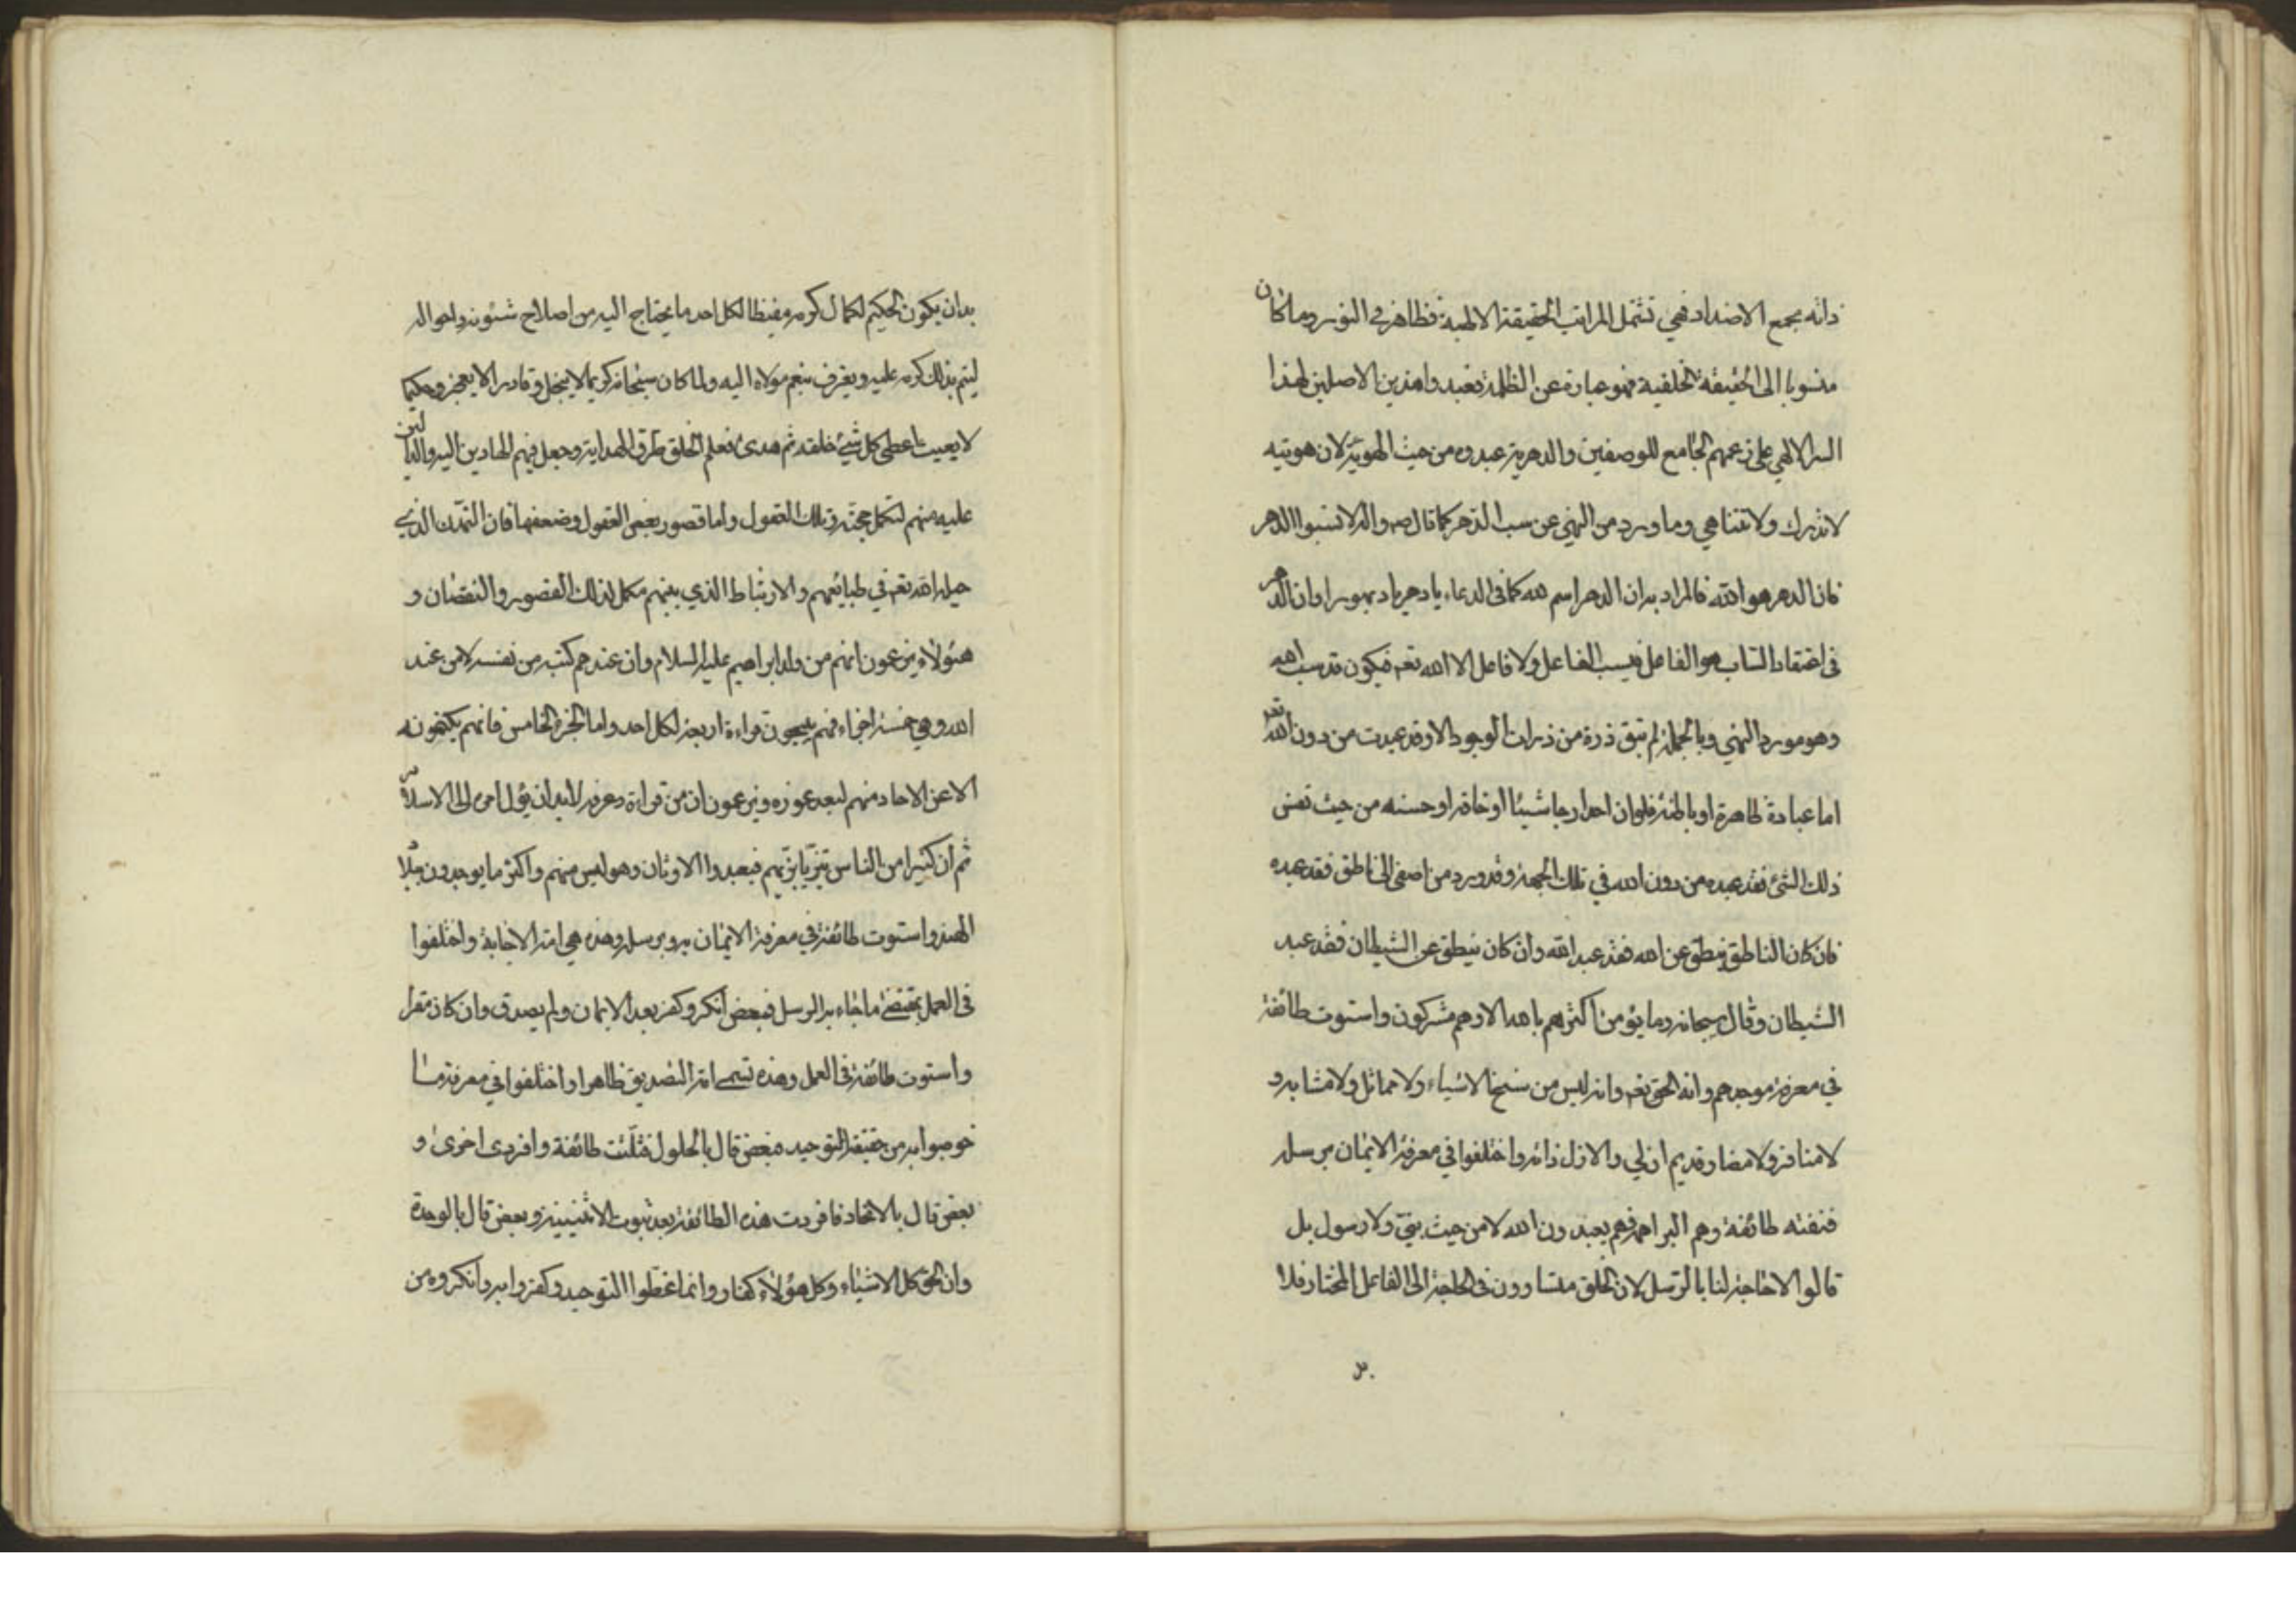 ذاته بجمع الاضداد فهي تشتمل المراتب الحقيقة الالهية فظاهر في النور وما كان
منسوبا الى الحقيقة الخلقية فهو عبارة عن الظلمة فعبدوا هذين الاصلين لهذا
السر الالهي على زعمهم الجامع للوصفين والدهرية عبدوه من حيث الهوية لان هويته
لا تدرك ولا تتناهي وما ورد من النهي عن سب الدهر كما قال ص واله لا تسبوا الدهر
فان الدهر هو الله فالمراد به ان الدهر اسم لله كما في الدعاء يا دهر يا ديهور او ان الدهر
في اعتقاد الساب هو الفاعل فيسب الفاعل ولا فاعل الا الله تعه فيكون قد سب الله
وهو مورد النهي وبالجملة لم تبق ذرة من ذرات الوجود الا وقد عبدت من دون الله تعه
اما عبادة ظاهرة او باطنة فلو ان احدا رجا شيئا او خافه او حسنه من حيث نفس
ذلك الشئ فقد عبده من دون الله في تلك الجهة وقد ورد من اصغى الى ناطق فقد عبده
فان كان الناطق ينطق عن الله فقد عبد الله وان كان ينطق عن الشيطان فقد عبد
الشيطان وقال سبحانه وما يؤمن اكثرهم بالله الا وهم مشركون واستوت طائفة
في معرفة موجدهم وانه الحق تعه وانه ليس من سنخ الاشياء ولا مماثل ولا مشابه و
لا منافر ولا مضاد قديم ازلي والازل ذاته واختلفوا في معرفة الايمان برسله
فنفته طائفة وهم البراهمة فهم يعبدون الله لا من حيث نبي ولا رسول بل
قالوا لا حاجة لنا بالرسل لان الخلق متساوون في الحاجة الى الفاعل المختار فلا
بد
بد ان يكون الحكيم لكمال كرمه مفيضا لكل احد ما يحتاج اليه من اصلاح شئونه واحواله
ليتم بذلك كرمه عليه ويعرف بنعم مولاه اليه ولما كان سبحانه كريما لا يبخل وقادرا لا يعجز وحكيما
لا يعبث اعطى كل شيئ خلقه ثم هدى فعلم الخلق طرق الهداية وجعل فيهم الهادين اليه والدالين
عليه منهم لتكمل حجته في تلك العقول واما قصور بعض العقول وضعفها فان التمدن الذي
جبله الله تعه في طبائعهم والارتباط الذي بينهم مكمل لذلك القصور والنقصان و
هؤلاء يزعمون انهم من ولد ابراهيم عليه السلام وان عندهم كتبه من نفسه لا من عند
الله وهي خمسة اجزاء فهم يبيحون قراءة اربعة لكل احد واما الجزء الخامس فانهم يكتمونه
الا عن الاحاد منهم لبعد غوره ويزعمون ان من قراءه وعرفه لا بد ان يؤل امره الى الاسلام
ثم ان كثيرا من الناس تزيا بزيهم فعبدوا الاوثان وهو ليس منهم واكثر ما يوجدون ببلاد
الهند واستوت طائفة في معرفة الايمان به وبرسله وهذه هي امة الاجابة واختلفوا
في العمل بمقتضى ما جاء به الرسل فبعض انكر وكفر بعد الايمان ولم يصدق وان كان مقرا
واستوت طائفة في العمل وهذه تسمى امة التصديق ظاهرا واختلفوا في معرفة ما
خوطبوا به من حقيقة التوحيد فبعض قال بالحلول فثلثت طائفة وافردت اخرى و
بعض قال بالاتحاد فافردت هذه الطائفة بعد ثبوت الاثنينية وبعض قال بالوحدة
وان الحق كل الاشياء وكل هؤلاء كفار وانما غطوا التوحيد وكفروا به وانكروه من